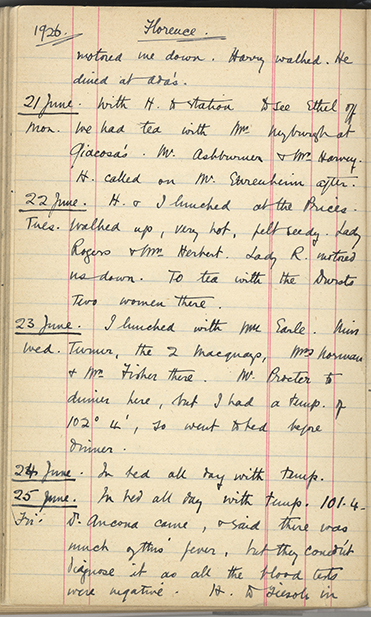 1926. Florence.
motored me down. Harry walked. He
dined at Ada's.
21 June. With H. to station to see Ethel off
Mon. We had tea with Mrs at
Giacosa's. Mr. Ashburner & Mrs Harvey.
H. called on Mr. Ehrenheim after.
22 June. H. & I lunched at the Prices.
Tues. Walked up, very hot, felt seedy. Lady
Rogers & Mrs Herbert. Lady R. motored
us down. To tea with the
two women there.
23 June. I lunched with Earle. Miss
Wed. Turner, the 2 Macquays, Mrs Norman
& Mrs Fisher there. Mr. Procter to
dinner here, but I had a temp. of
102° 4', so went to bed before
dinner.
24 June. In bed all day with temp.
25 June. In bed all day with temp. 101.4.
Fri: D. Ancona came, & said there was
much of this fever, but they couldn't
diagnose it as all the blood tests
were negative. H. to Fiesole in